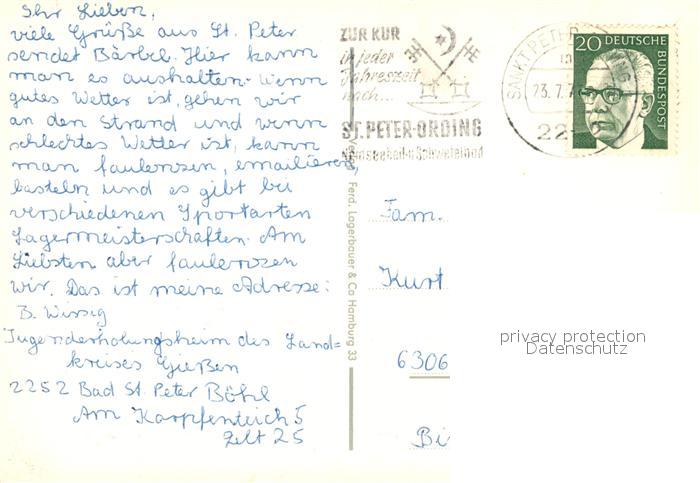 Ihr Lieben,
viele Grüße aus St. Peter
sendet Bärbel. Hier kann
man es aushalten. Wenn
gutes Wetter ist, gehen wir
an den Strand und wenn
schlechtes Wetter ist, kann
man faulenzen, emailieren,
basteln und es gibt bei
verschiedenen Sportarten
Lagermeisterschaften. Am
Liebsten aber faulenzen
wir. Das ist meine Adresse:
B. Wissig
Jugenderholungsheim des Land=
kreises Gießen
2252 Bad St. Peter Böhl
Am Karpfenteich 5
Zelt 25
Verlag Ferd. Lagerbauer & Co Hamburg 33
ZUR KUR
in jeder
Jahreszeit
nach...
ST. PETER-ORDING
Nordseeheil- u. Schwefelbad
SANKT PETER-ORDING
23.7.7
20 DEUTSCHE
BUNDESPOST
Fam.
Kurt
6306
privacy protection
Datenschutz